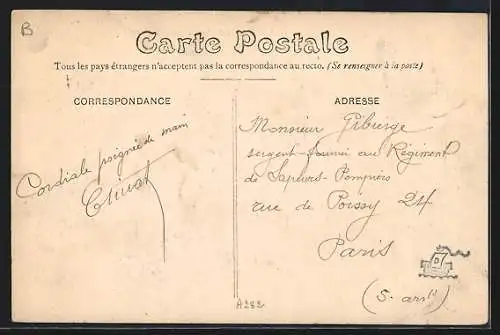 B
Carte Postale
Tous les pays étrangers n'acceptent pas la correspondance au recto. (Se renseigner à la poste)
CORRESPONDANCE
ADRESSE
Cordiale poignée de main
Monsieur
sergent-fourrier au Régiment
de Sapeurs-Pompiers
rue de Poissy 24
Paris
A282